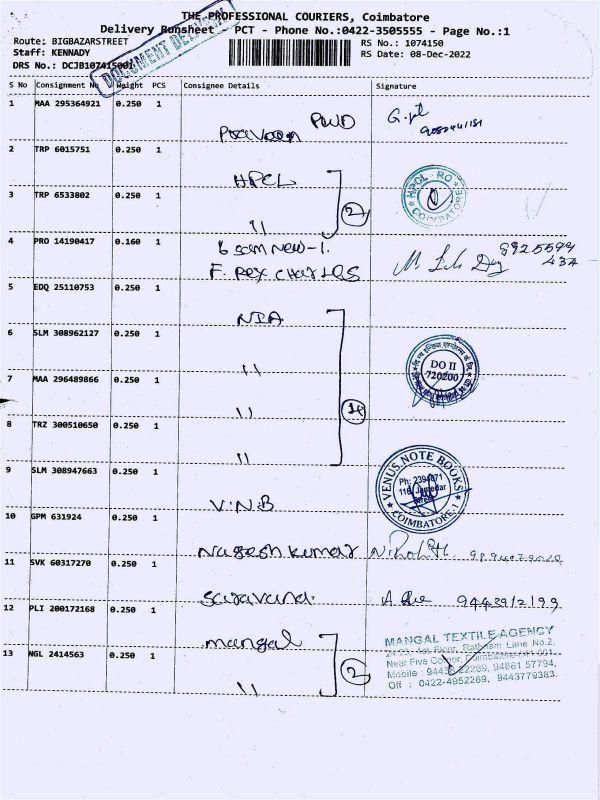 THE PROFESSIONAL COURIERS, Coimbatore
Delivery Runsheet - PCT - Phone No.:0422-3505555 - Page No.:1
Route: BIGBAZARSTREET
Staff: KENNADY
DRS No.: DCJB107415001
RS No.: 1074150
RS Date: 08-Dec-2022
DOCUMENT
S No Consignment No Weight PCS Consignee Details Signature
1 MAA 295364921 0.250 1
PWD
2 TRP 6015751 0.250 1
HPCL
HPCL - RO
COIMBATORE
3 TRP 6533802 0.250 1
"
2
4 PRO 14190417 0.160 1
F. Rex CharLes
8925599
437
5 EDQ 25110753 0.250 1
NIA
6 SLM 308962127 0.250 1
"
DO II
720200
7 MAA 296489866 0.250 1
"
4
8 TRZ 300510650 0.250 1
"
9 SLM 308947663 0.250 1
V.N.B
VENUS NOTE BOOKS
Ph: 2394071
COIMBATORE-1
10 GPM 631924 0.250 1
Nagesh kumar
11 SVK 60317270 0.250 1
Saravana.
12 PLI 200172168 0.250 1
mangal
MANGAL TEXTILE AGENCY
1st Floor, Rathnam Lane No.2,
Near Five Corner, Coimbatore-641 001.
13 NGL 2414563 0.250 1
"
2
94861 57794,
Off : 0422-4952269, 9443779383.